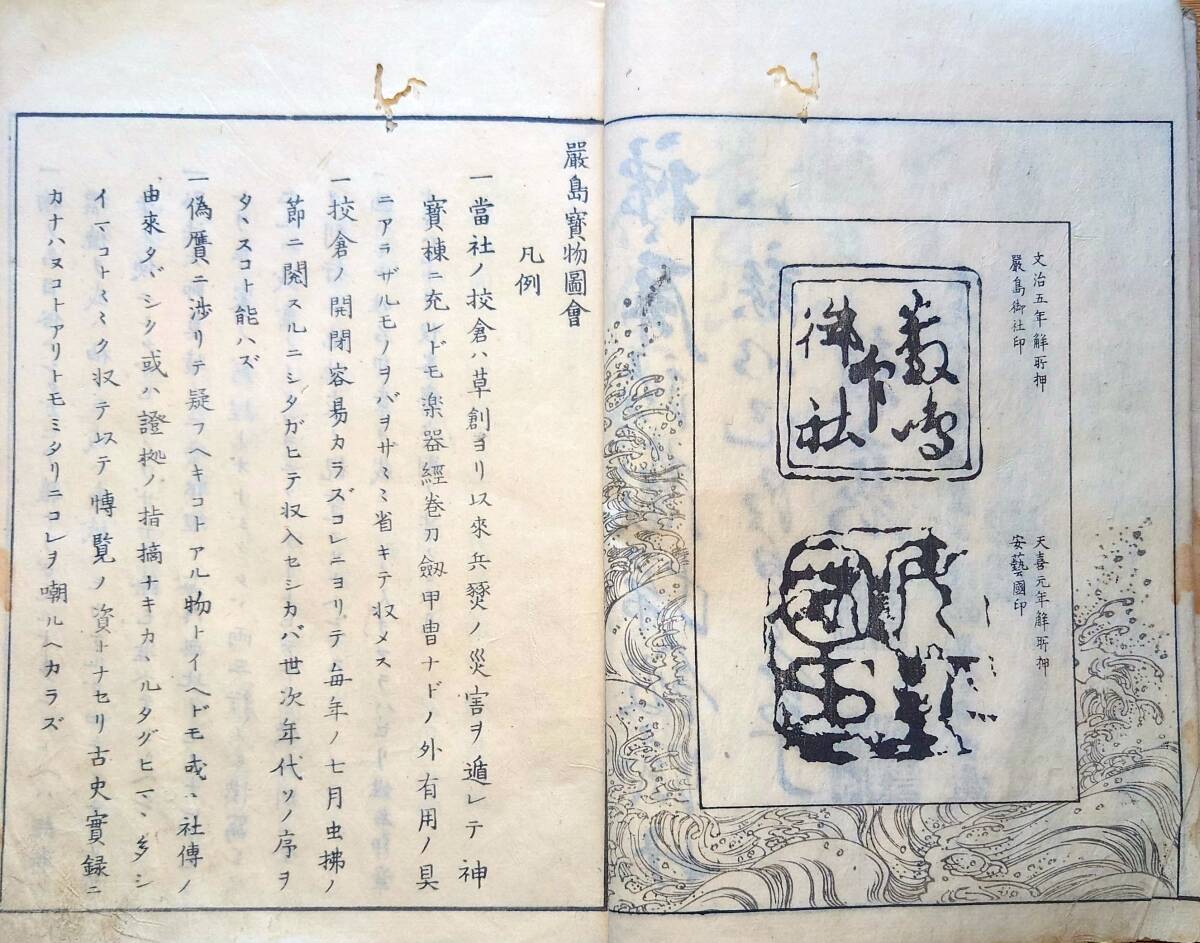 文治五年解所押
嚴島御社印
嚴島
印
御社
天喜元年解所押
安藝國印
嚴島寶物圖會
凡例
一當社ノ校倉ハ草創ヨリ以來兵燹ノ災害ヲ遁レテ神
寶棟ニ充レドモ楽器經卷刀劔甲冑ナドノ外有用ノ具
ニアラザルモノヲバヲサ〱省キテ収メス
一校倉ノ開閉容易カラズコレニヨリテ毎年ノ七月虫拂ノ
節ニ閲スルニシタガヒテ収入セシカバ世次年代ソノ序ヲ
タヽスコト能ハズ
一偽贋ニ渉リテ疑フヘキコトアル物トイヘドモ或ハ社傳ノ
由來タヾシク或ハ證拠ノ指摘ナキカヽルタグヒマヽ多シ
イマコト〱ク収テ以テ博覧ノ資トナセリ古史實録ニ
カナハヌコトアリトモミタリニコレヲ嘲ルヘカラズ